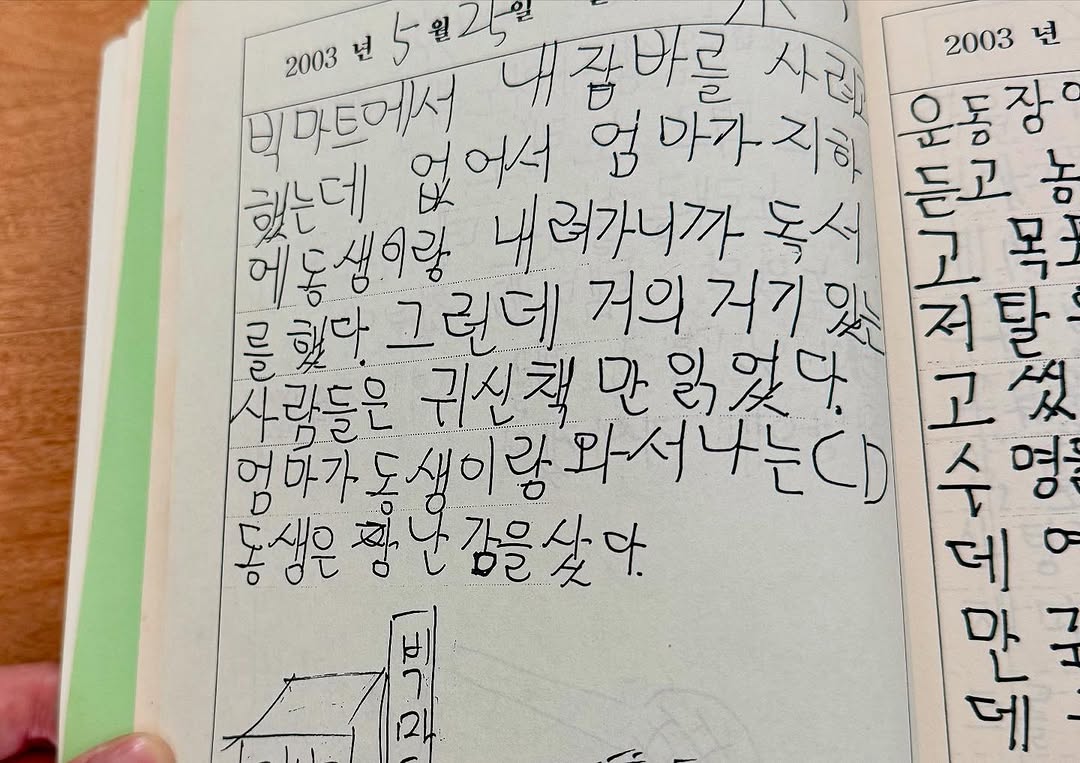 2003 년 5 월 25 일
빅마트에서 내 잠바를 사려고
했는데 없어서 엄마가 지하
에동생이랑 내려가니까 독서
를 했다. 그런데 거의 거기 있는
사람들은 귀신책 만 읽었다.
엄마가 동생이랑 와서 나는 CD
동생은 짱난감을 샀다.
빅
마
2003 년
운동장
듣고
고 목표
저 탈
고 썼
수 영
데 여
만
데